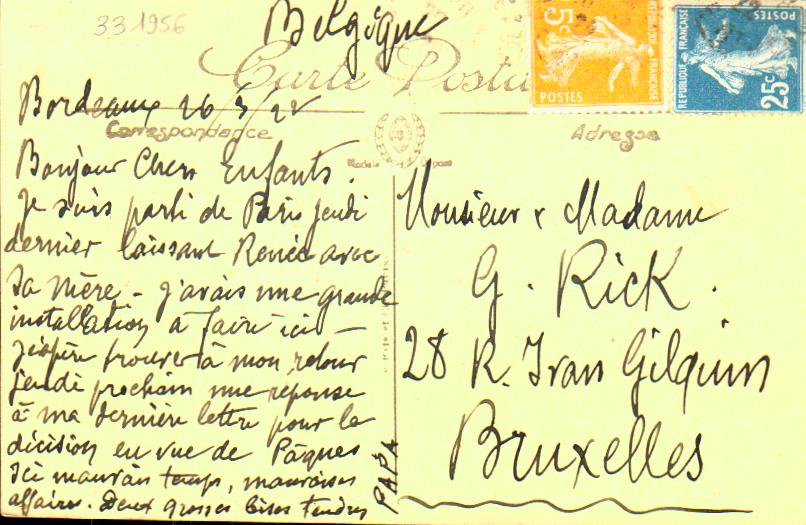 33 1956
Belgique
Carte Posta
5c
POSTES
REPUBLIQUE FRANÇAISE
REPUBLIQUE FRANÇAISE
25c
POSTES
Bordeaux 26/3/22
Correspondance
Adresse
Bonjour Chers Enfants.
Je suis parti de Paris jeudi
dernier laissant Renée avec
sa mère - j'avais une grande
installation à faire ici -
j'espère trouver à mon retour
jeudi prochain une réponse
à ma dernière lettre pour la
décision en vue de Pâques
Ici mauvais temps, mauvaises
affaires. Deux grosses bises tendres
PAPA
Monsieur & Madame
G. Rick.
28 R. Ivan Gilquin
Bruxelles